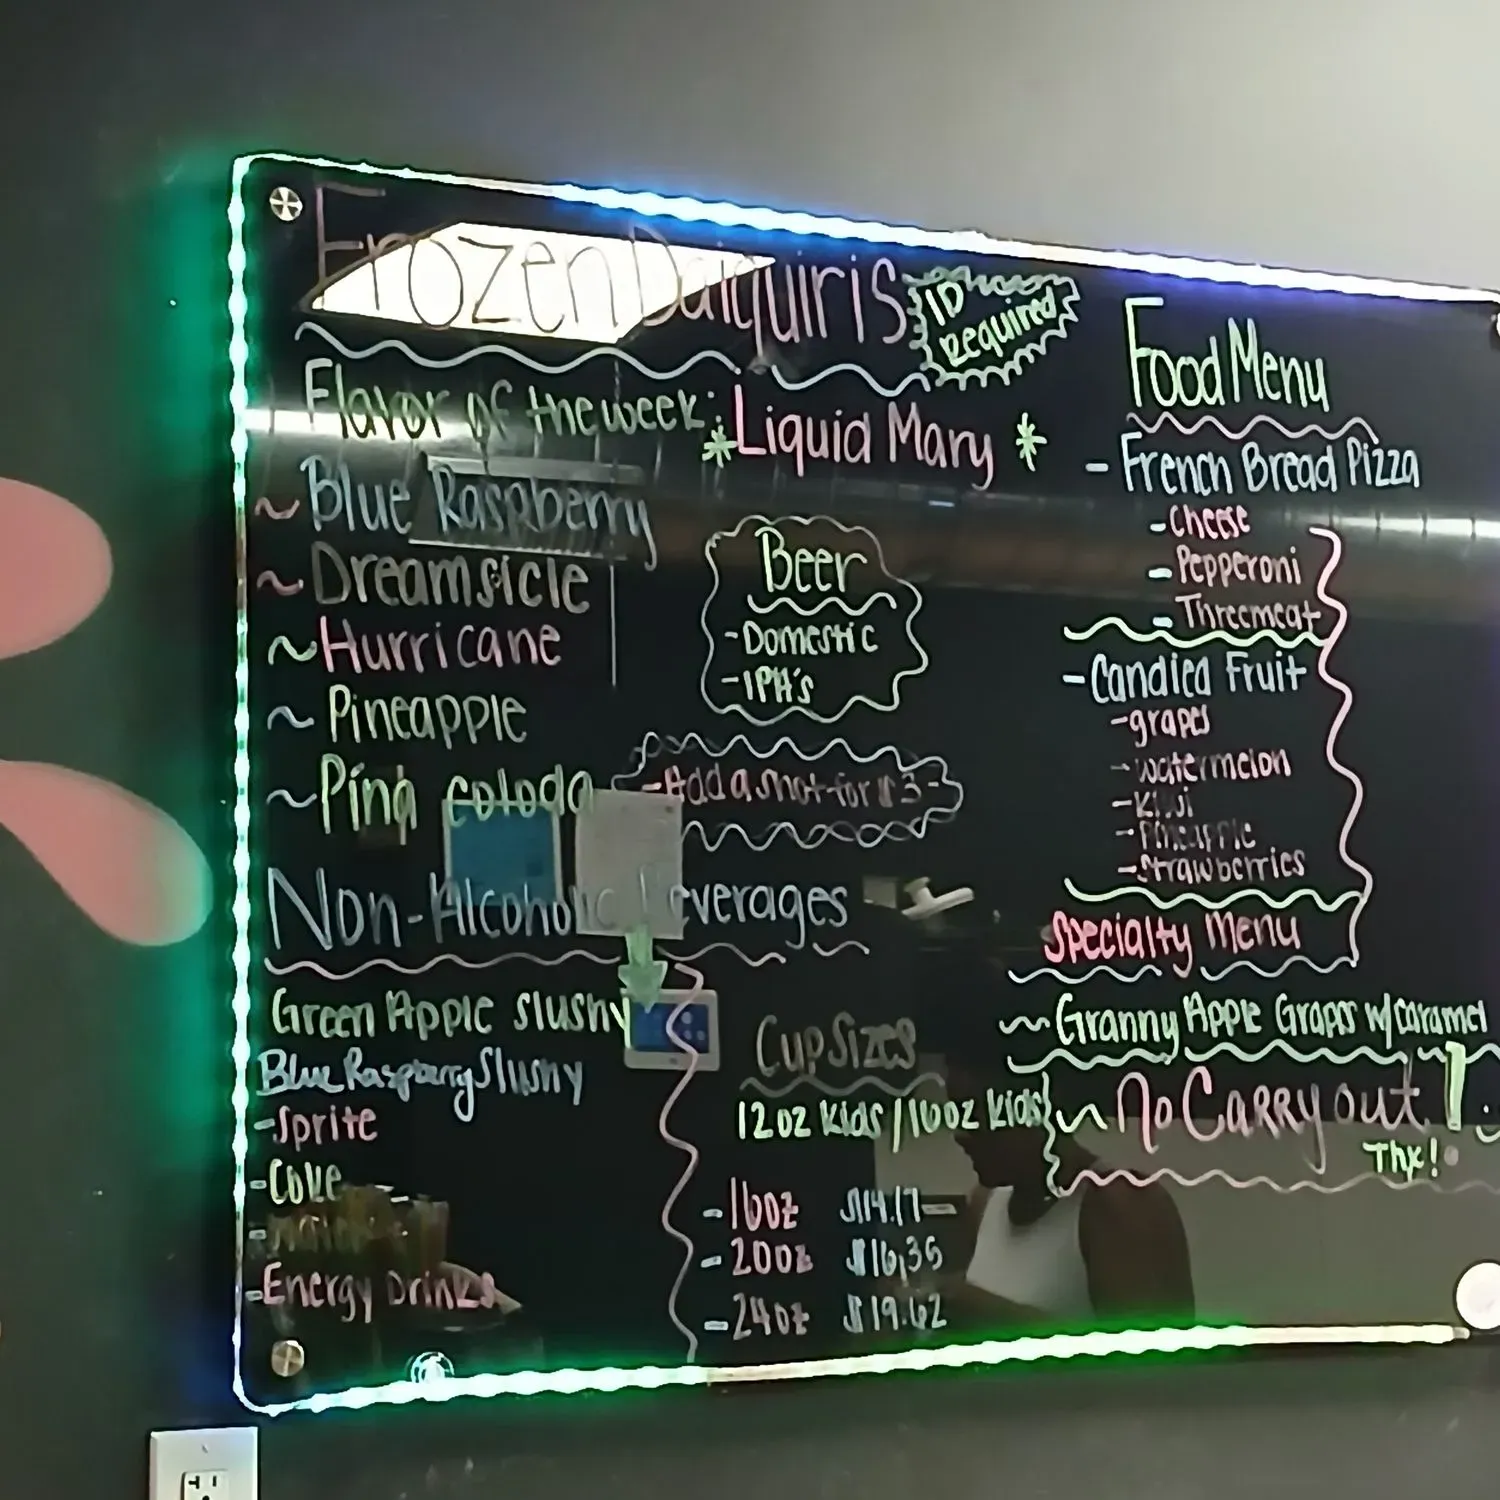 Frozen Daiquiris
ID Required
Flavor of the week:
*Liquid Mary *
~ Blue Raspberry
~ Dreamsicle
~ Hurricane
~ Pineapple
~ Pina colada
Beer
- Domestic
- IPA's
- Add a shot for $3 -
Non-Alcoholic Beverages
Green Apple Slushy
Blue Raspberry Slushy
- Sprite
- Coke
- Energy Drinks
Cup Sizes
12oz Kids / 16oz Kids
- 16oz $14.17
- 20oz $16,35
- 24oz $19.62
Food Menu
- French Bread Pizza
- Cheese
- Pepperoni
- Threemeat
- Candied Fruit
- grapes
- watermelon
- Kiwi
- Pineapple
- Strawberries
Specialty Menu
~ Granny Apple Grapes w/caramel
~ No Carry out!
Thx!